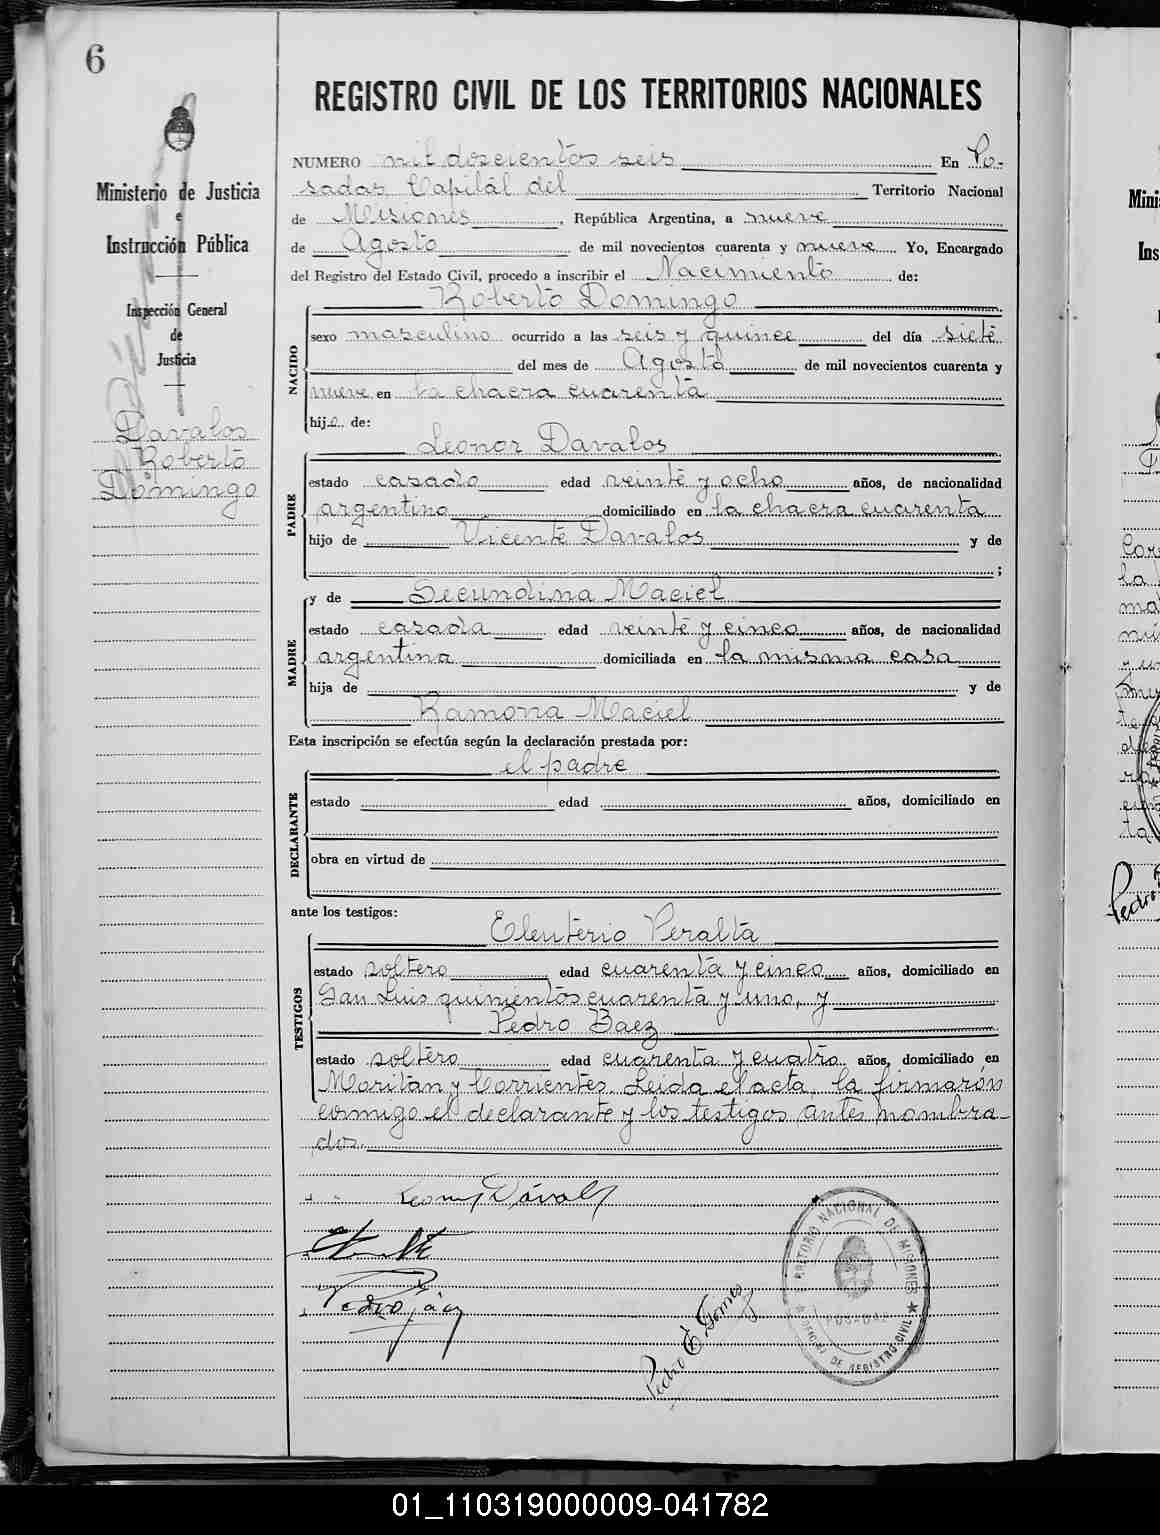 6
REGISTRO CIVIL DE LOS TERRITORIOS NACIONALES
Ministerio de Justicia
e
Instrucción Pública
Inspección General
de
Justicia
Davalos
Roberto
Domingo
NUMERO mil doscientos seis En Po-
sadas Capitál del Territorio Nacional
de Misiones, República Argentina, a nueve
de Agosto de mil novecientos cuarenta y nueve Yo, Encargado
del Registro del Estado Civil, procedo a inscribir el Nacimiento de:
NACIDO
Roberto Domingo
sexo masculino ocurrido a las seis y quince del día siete
del mes de Agosto de mil novecientos cuarenta y
nueve en la chacra cuarenta
hijo de:
PADRE
Leonor Davalos
estado casado edad veinte y ocho años, de nacionalidad
argentino domiciliado en la chacra cuarenta
hijo de Vicente Davalos y de
;
MADRE
y de Secundina Maciel
estado casada edad veinte y cinco años, de nacionalidad
argentina domiciliada en la misma casa
hija de y de
Ramona Maciel
Esta inscripción se efectúa según la declaración prestada por:
DECLARANTE
el padre
estado edad años, domiciliado en
obra en virtud de
ante los testigos:
TESTIGOS
Eleuterio Peralta
estado soltero edad cuarenta y cinco años, domiciliado en
San Luis quinientos cuarenta y uno, y
Pedro Baez
estado soltero edad cuarenta y cuatro años, domiciliado en
Moritan y Corrientes. Leida el acta, la firmarón
conmigo el declarante y los testigos ántes nombra-
dos.
Leonor Dávalos
Pedro Báez
Pedro E. Gomez
TERRITORIO NACIONAL DE MISIONES
POSADAS
OFICINA DE REGISTRO CIVIL
01_110319000009-041782